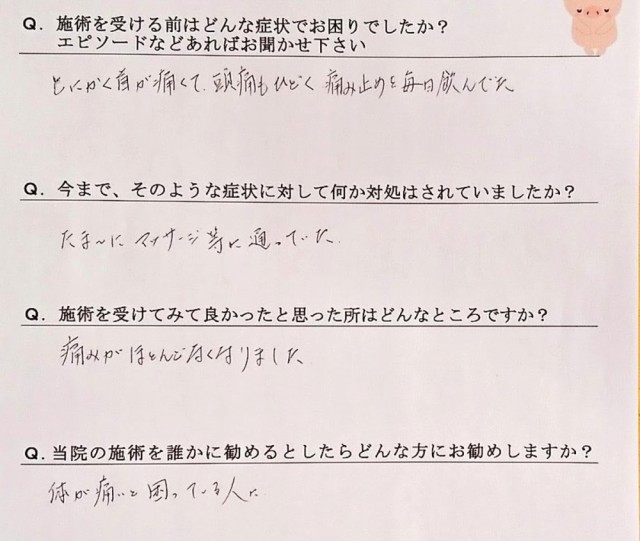 Q．施術を受ける前はどんな症状でお困りでしたか？
エピソードなどあればお聞かせ下さい
とにかく首が痛くて、頭痛もひどく 痛み止めを毎日飲んでた
Q．今まで、そのような症状に対して何か対処はされていましたか？
たま〜に マッサージ等に通っていた。
Q．施術を受けてみて良かったと思った所はどんなところですか？
痛みがほとんどなくなりました
Q．当院の施術を誰かに勧めるとしたらどんな方にお勧めしますか？
体が痛いと困っている人に